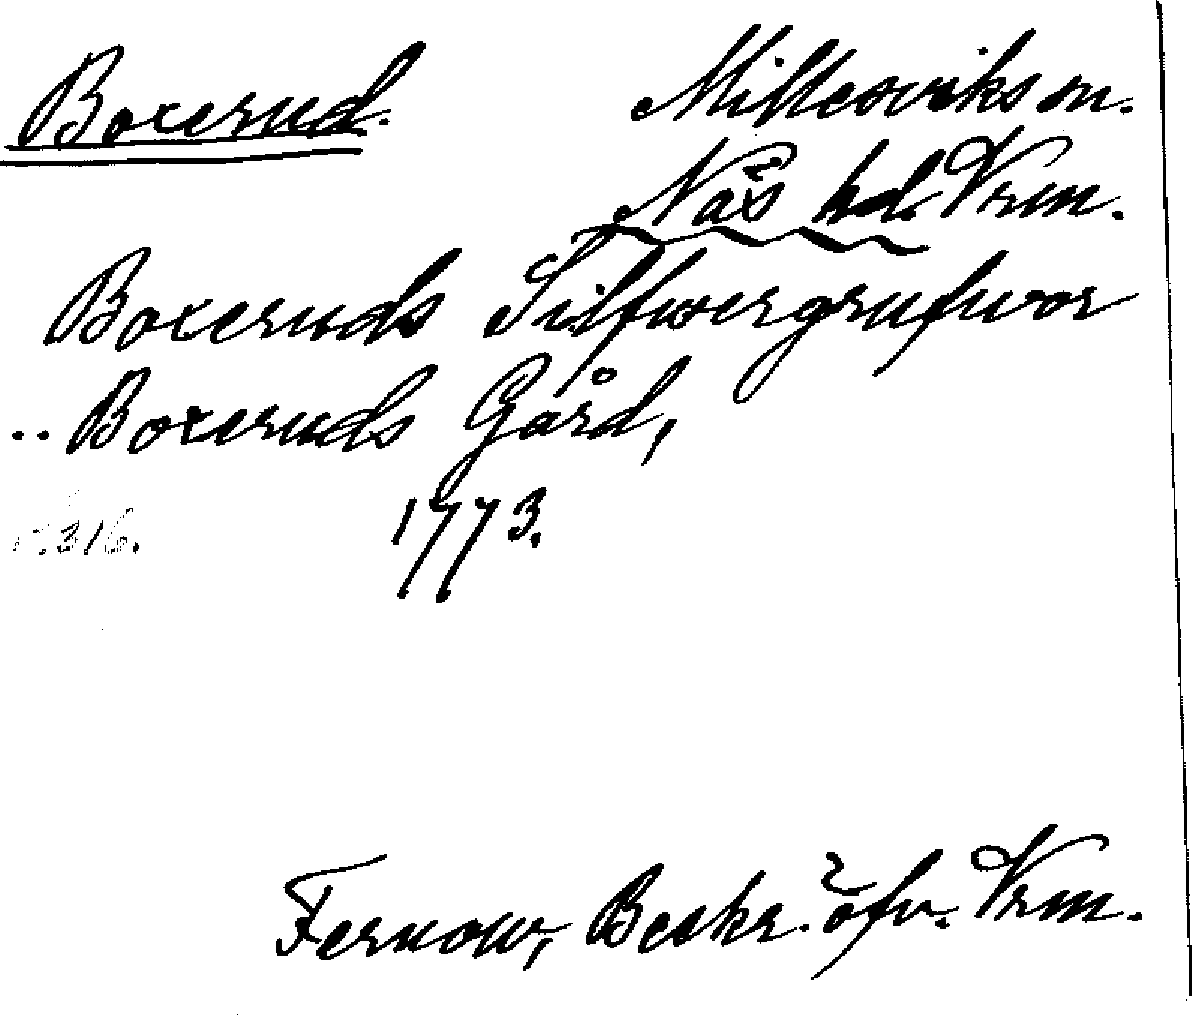 Boxerud.
Millesviks sn.
Näs hd. Vrm.
Boxeruds Silfwergrufwor
.. Boxeruds Gård,
s. 316.
1773.
Fernow, Beskr. öfv. Vrm.